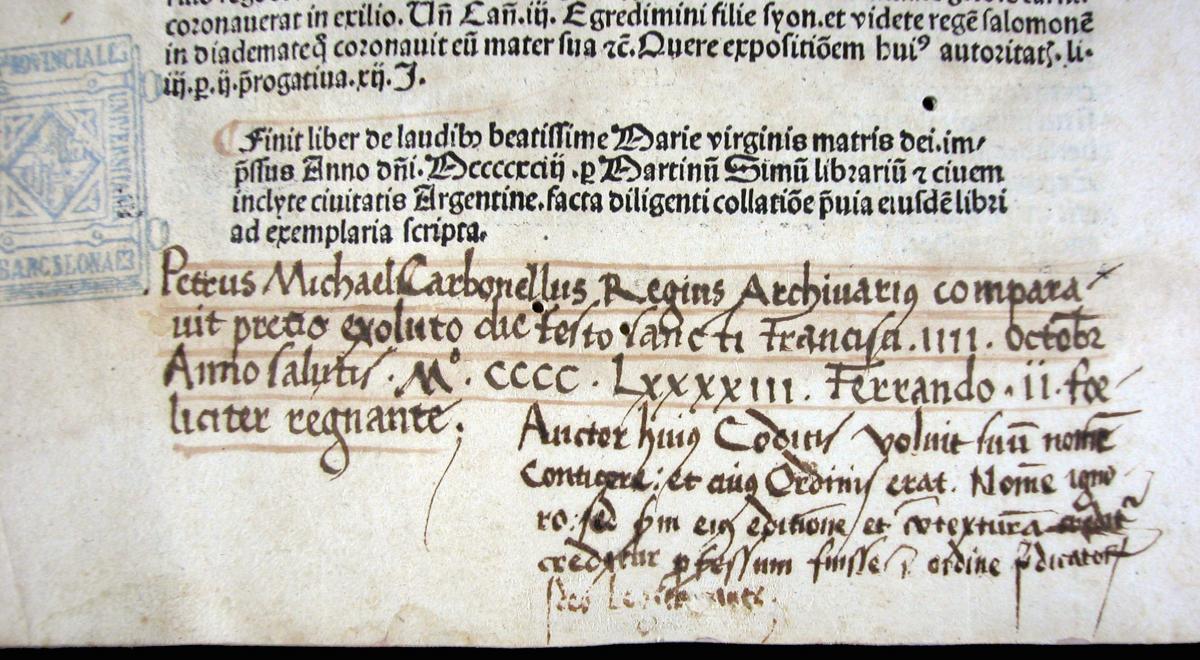 coronauerat in exilio. Un̄ Can̄.iij. Egredimini filie syon.et videte regē salomonē
in diademateq̨ coronauit eū mater sua ⁊c̄.Quere expositiōem huiꝰ autoritat̨.li-
iij.ꝑ.ij.p̄rogatiua.xij.J.
Finit liber de laudibꝫ beatissime Marie virginis matris dei.im/
p̄ssus Anno dn̄i.Mccccxciij.ꝑ Martinū Simū librariū ⁊ ciuem
inclyte ciuitatis Argentine.facta diligenti collatiōe p̄uia eiusdē libri
ad exemplaria scripta.
PROVINCIAL
BARCELONA
Petrus Michael Carbonellus Regius Archiuariꝯ compara-
uit precio exoluto die festo sancti Francisci.IIII. Octobr̄
Anno salutis. Mº. CCCC. LXXXXIII. Ferrando.II.foe-
liciter regnante.
Auctor huiꝯ Codicis voluit suū nomē
contigere: et eiuꝯ Ordinis erat. Nomē igno-
ro: sed eiꝯ editionē et cōtexturā
creditur ꝓfessum fuisse ordine p̄dicator